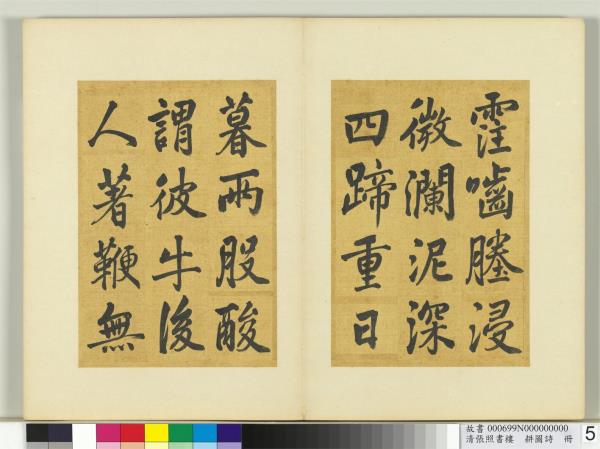 霪嚙塍浸
微瀾泥深
四蹄重日
暮兩股酸
謂彼牛後
人著鞭無
故書 000699N000000000
清張照書樓　耕圖詩　冊
5